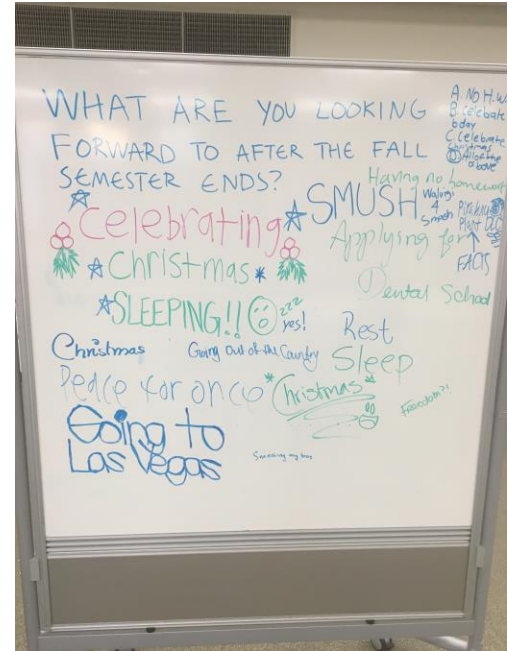 WHAT ARE YOU LOOKING
FORWARD TO AFTER THE FALL
SEMESTER ENDS?
A. NO H.W.
B. Celebrate
bday
C. Celebrate
Christmas
D All of the
above
Having no homework
Celebrating
Christmas
SMUSH
4
Smash
Piranha
Plant DLC
FACTS
Applying for
Dental School
SLEEPING!!
zzz
yes!
Rest
Christmas
Going Out of the Country
Sleep
Peace for once
Christmas
Freedom?!
Going to
Las Vegas